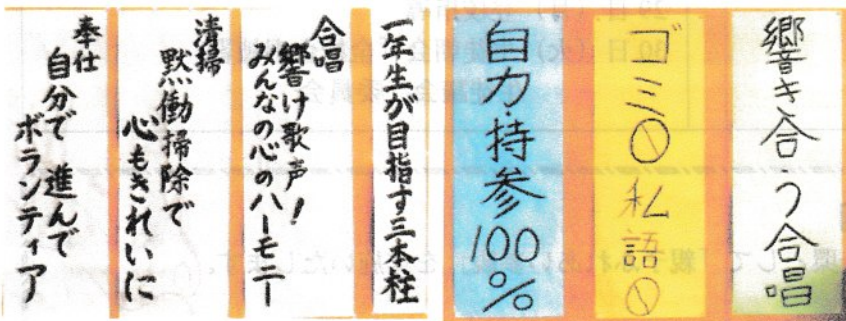 響き合う合唱
ゴミ0私語0
自力・持参100%
一年生が目指す三本柱
合唱
響け歌声!
みんなの心のハーモニー
清掃
黙働掃除で
心もきれいに
奉仕
自分で 進んで
ボランティア